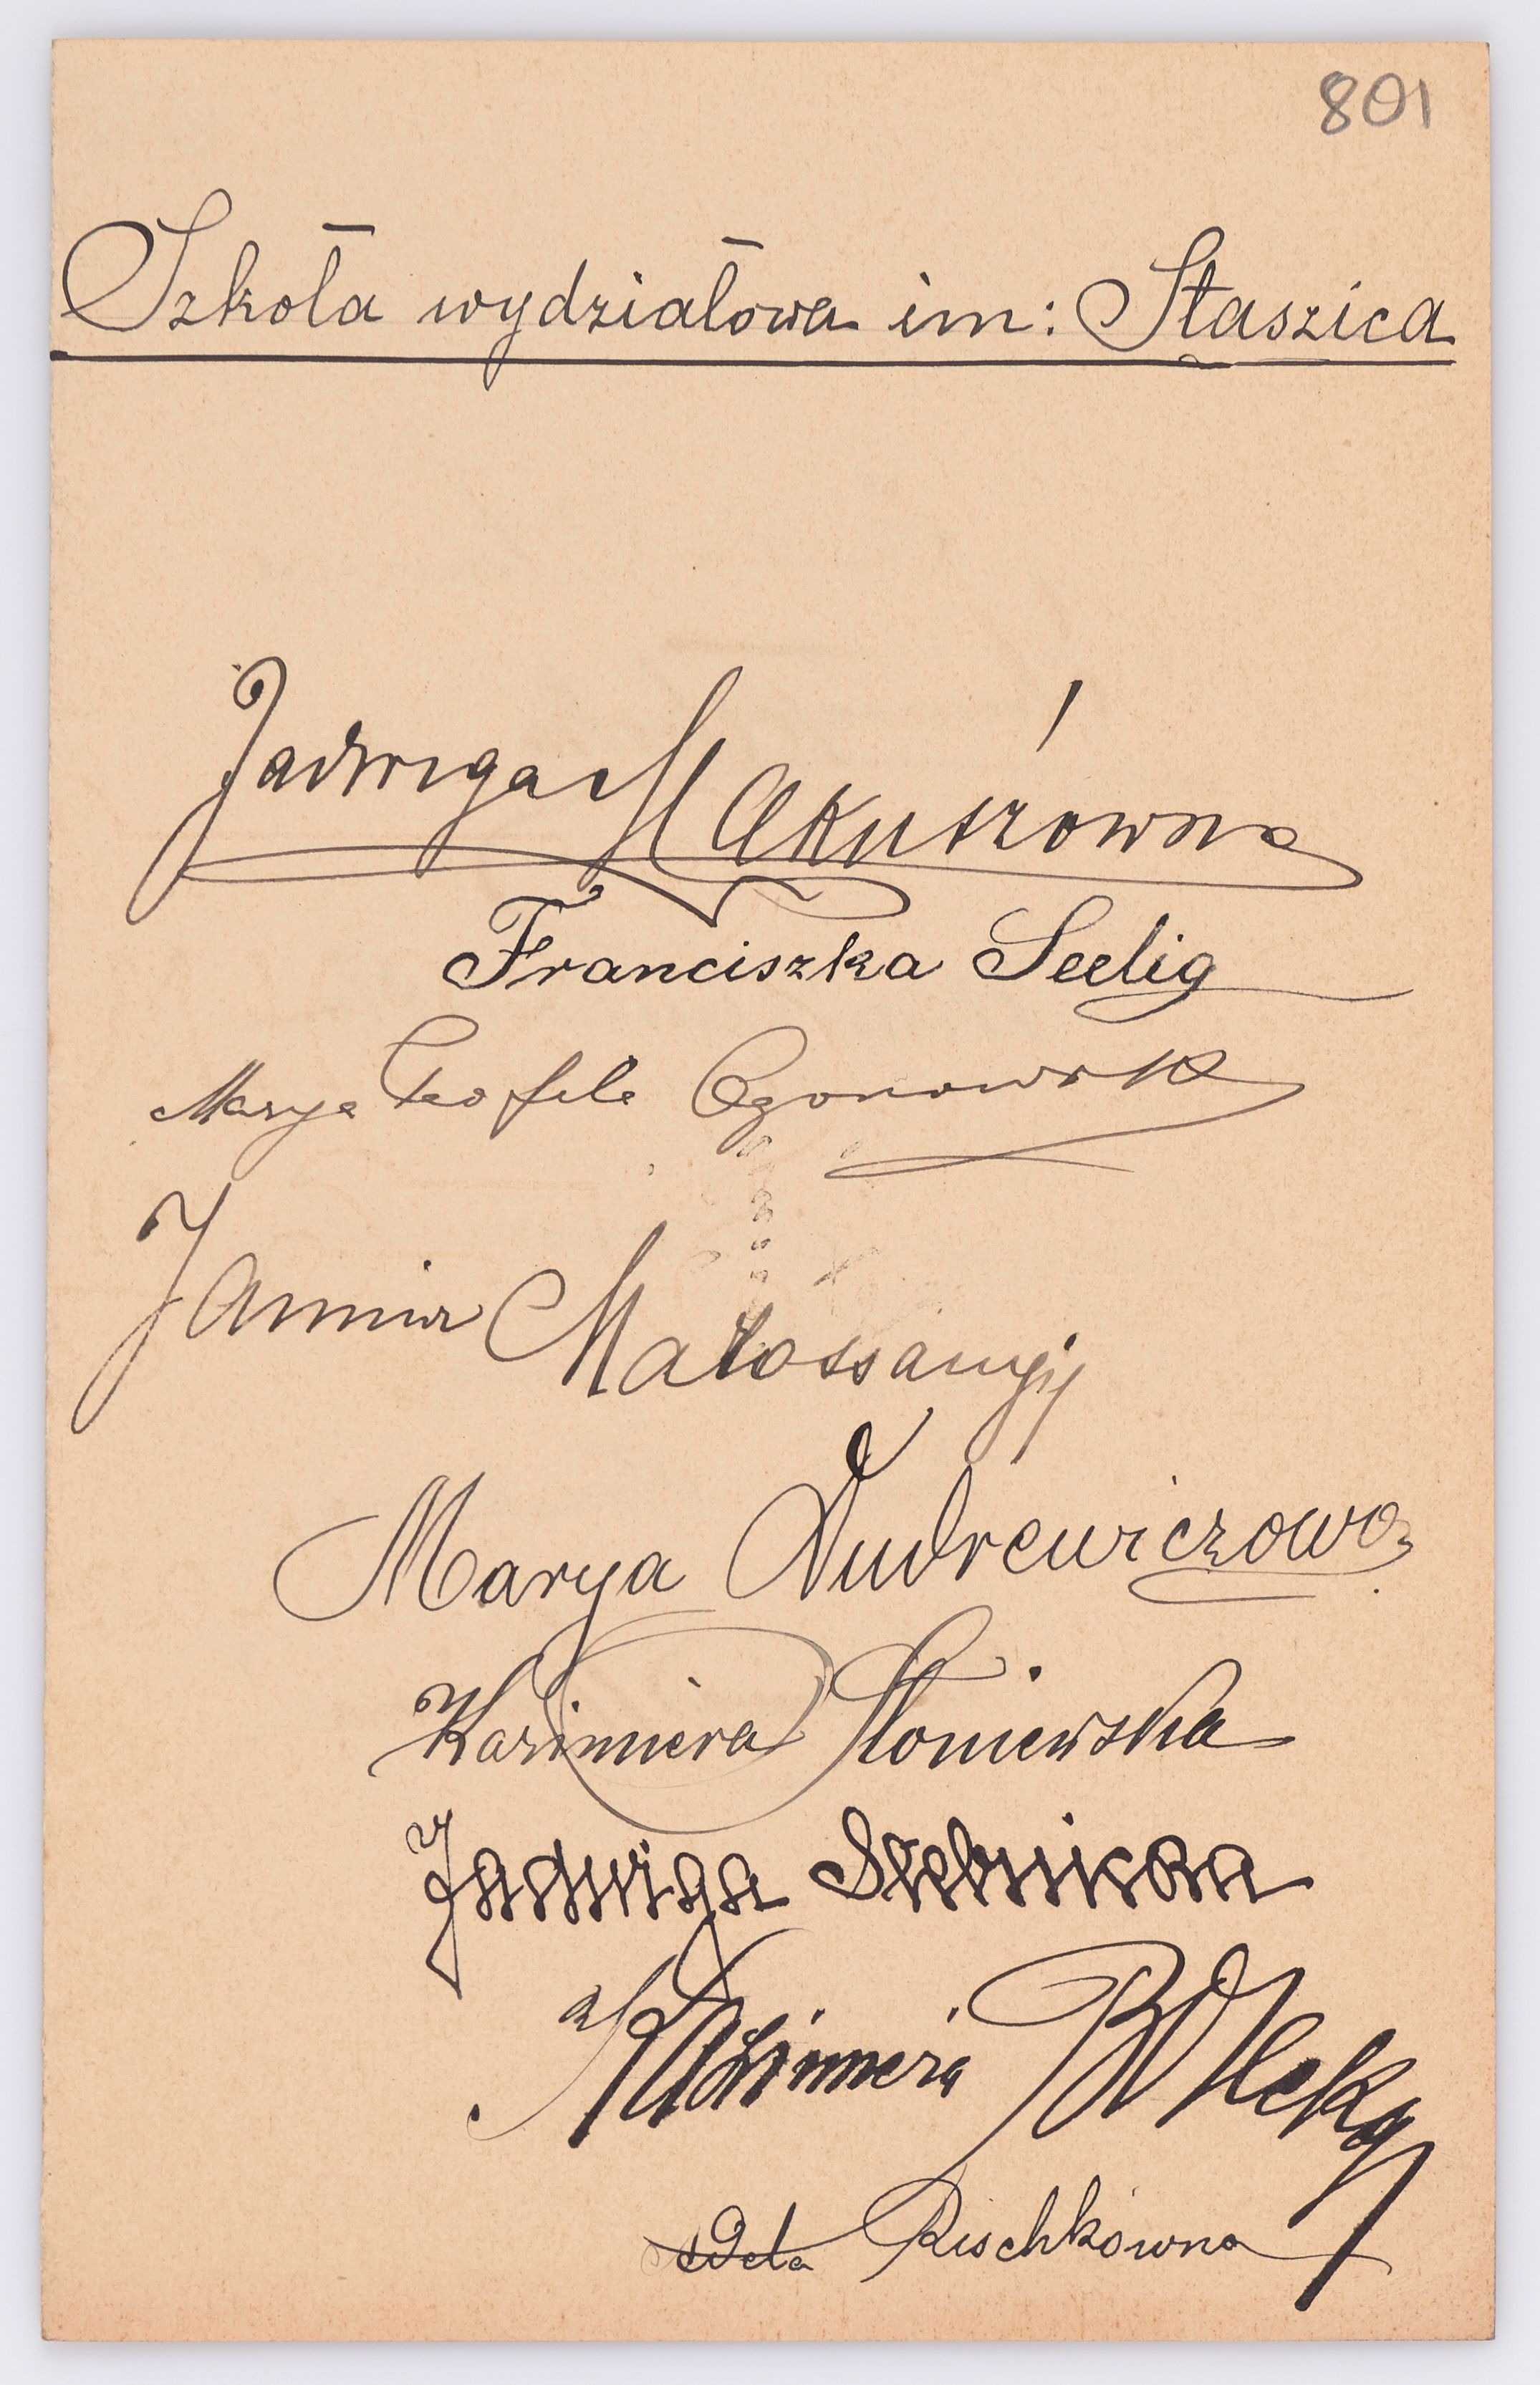 801
Szkoła wydziałowa im: Staszica
Jadwiga Makuszówna
Franciszka Seelig
Marya Teofila Ogonowska
Janina
Marya Andrewiczowa
Kazimiera Słoniewska
Jadwiga
Kazimiera
Rischkówna